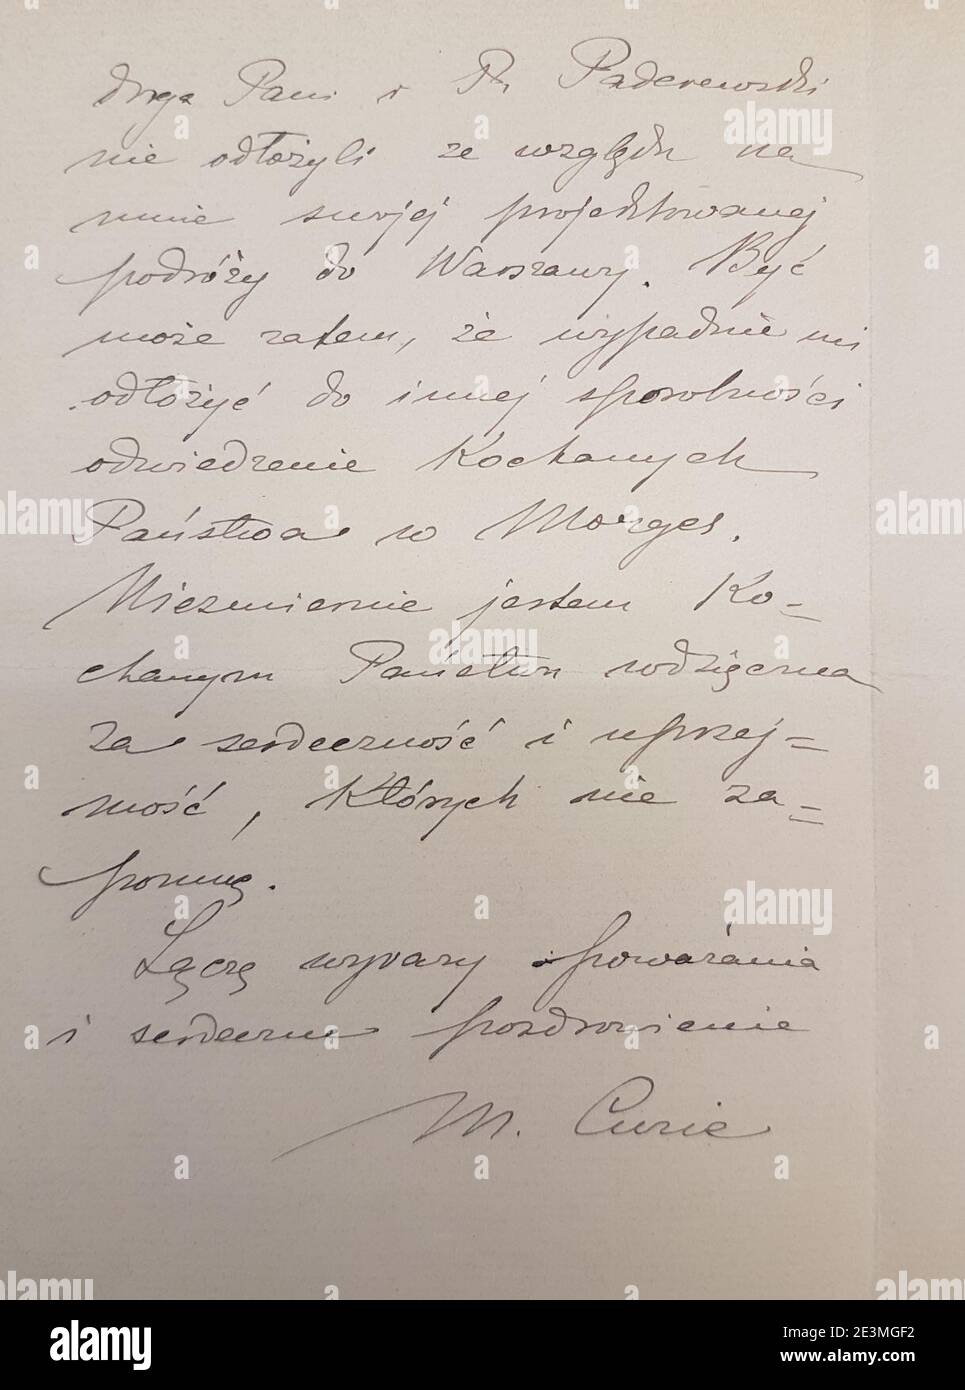 droga Pani i P. Paderewski
nie odłożyli ze względu na
mnie swojej projektowanej
podróży do Warszawy. Być
może zatem, że wypadnie mi
odłożyć do innej sposobności
odwiedzenie Kochanych
Państwa w Morges.
Niezmiernie jestem Ko=
chanym Państwu wdzięczna
za serdeczność i uprzej=
mość, których nie za=
pomnę.
Łączę wyrazy poważania
i serdeczne pozdrowienie
M. Curie
alamy
a
www.alamy.com
Image ID: 2E3MGF2